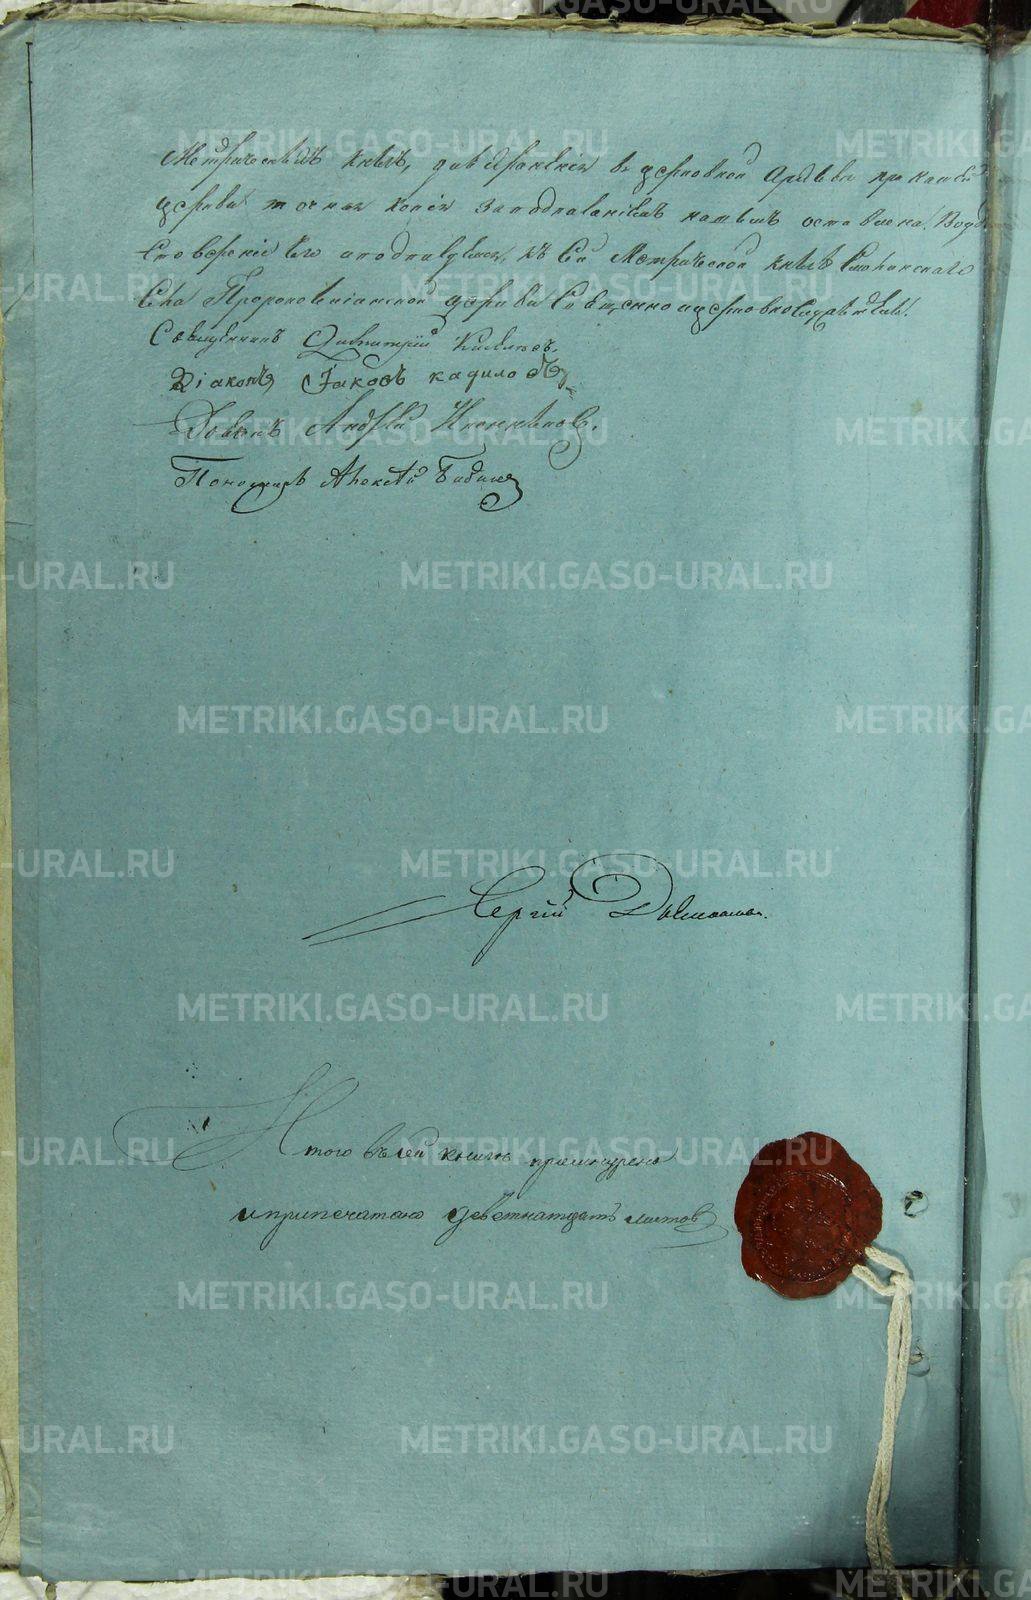 Метрическихъ книгъ, для храненія въ церковной Архивѣ при нашей
церкви точная копія за подписаніемъ нашимъ оставлена. Во удо
стовѣреніе сего и подписуемся, къ сей Метрической книгѣ
Села Пророко Ильинской церкви Священно и церковнослужители.
Священникъ Димитрій
Діаконъ Іаковъ Кадиловъ
Дьячекъ Андрей
Пономарь Алексѣй
Сергій
Итого въ сей книгѣ прошнурено
и припечатано девятнатцать листовъ
METRIKI.GASO-URAL.RU